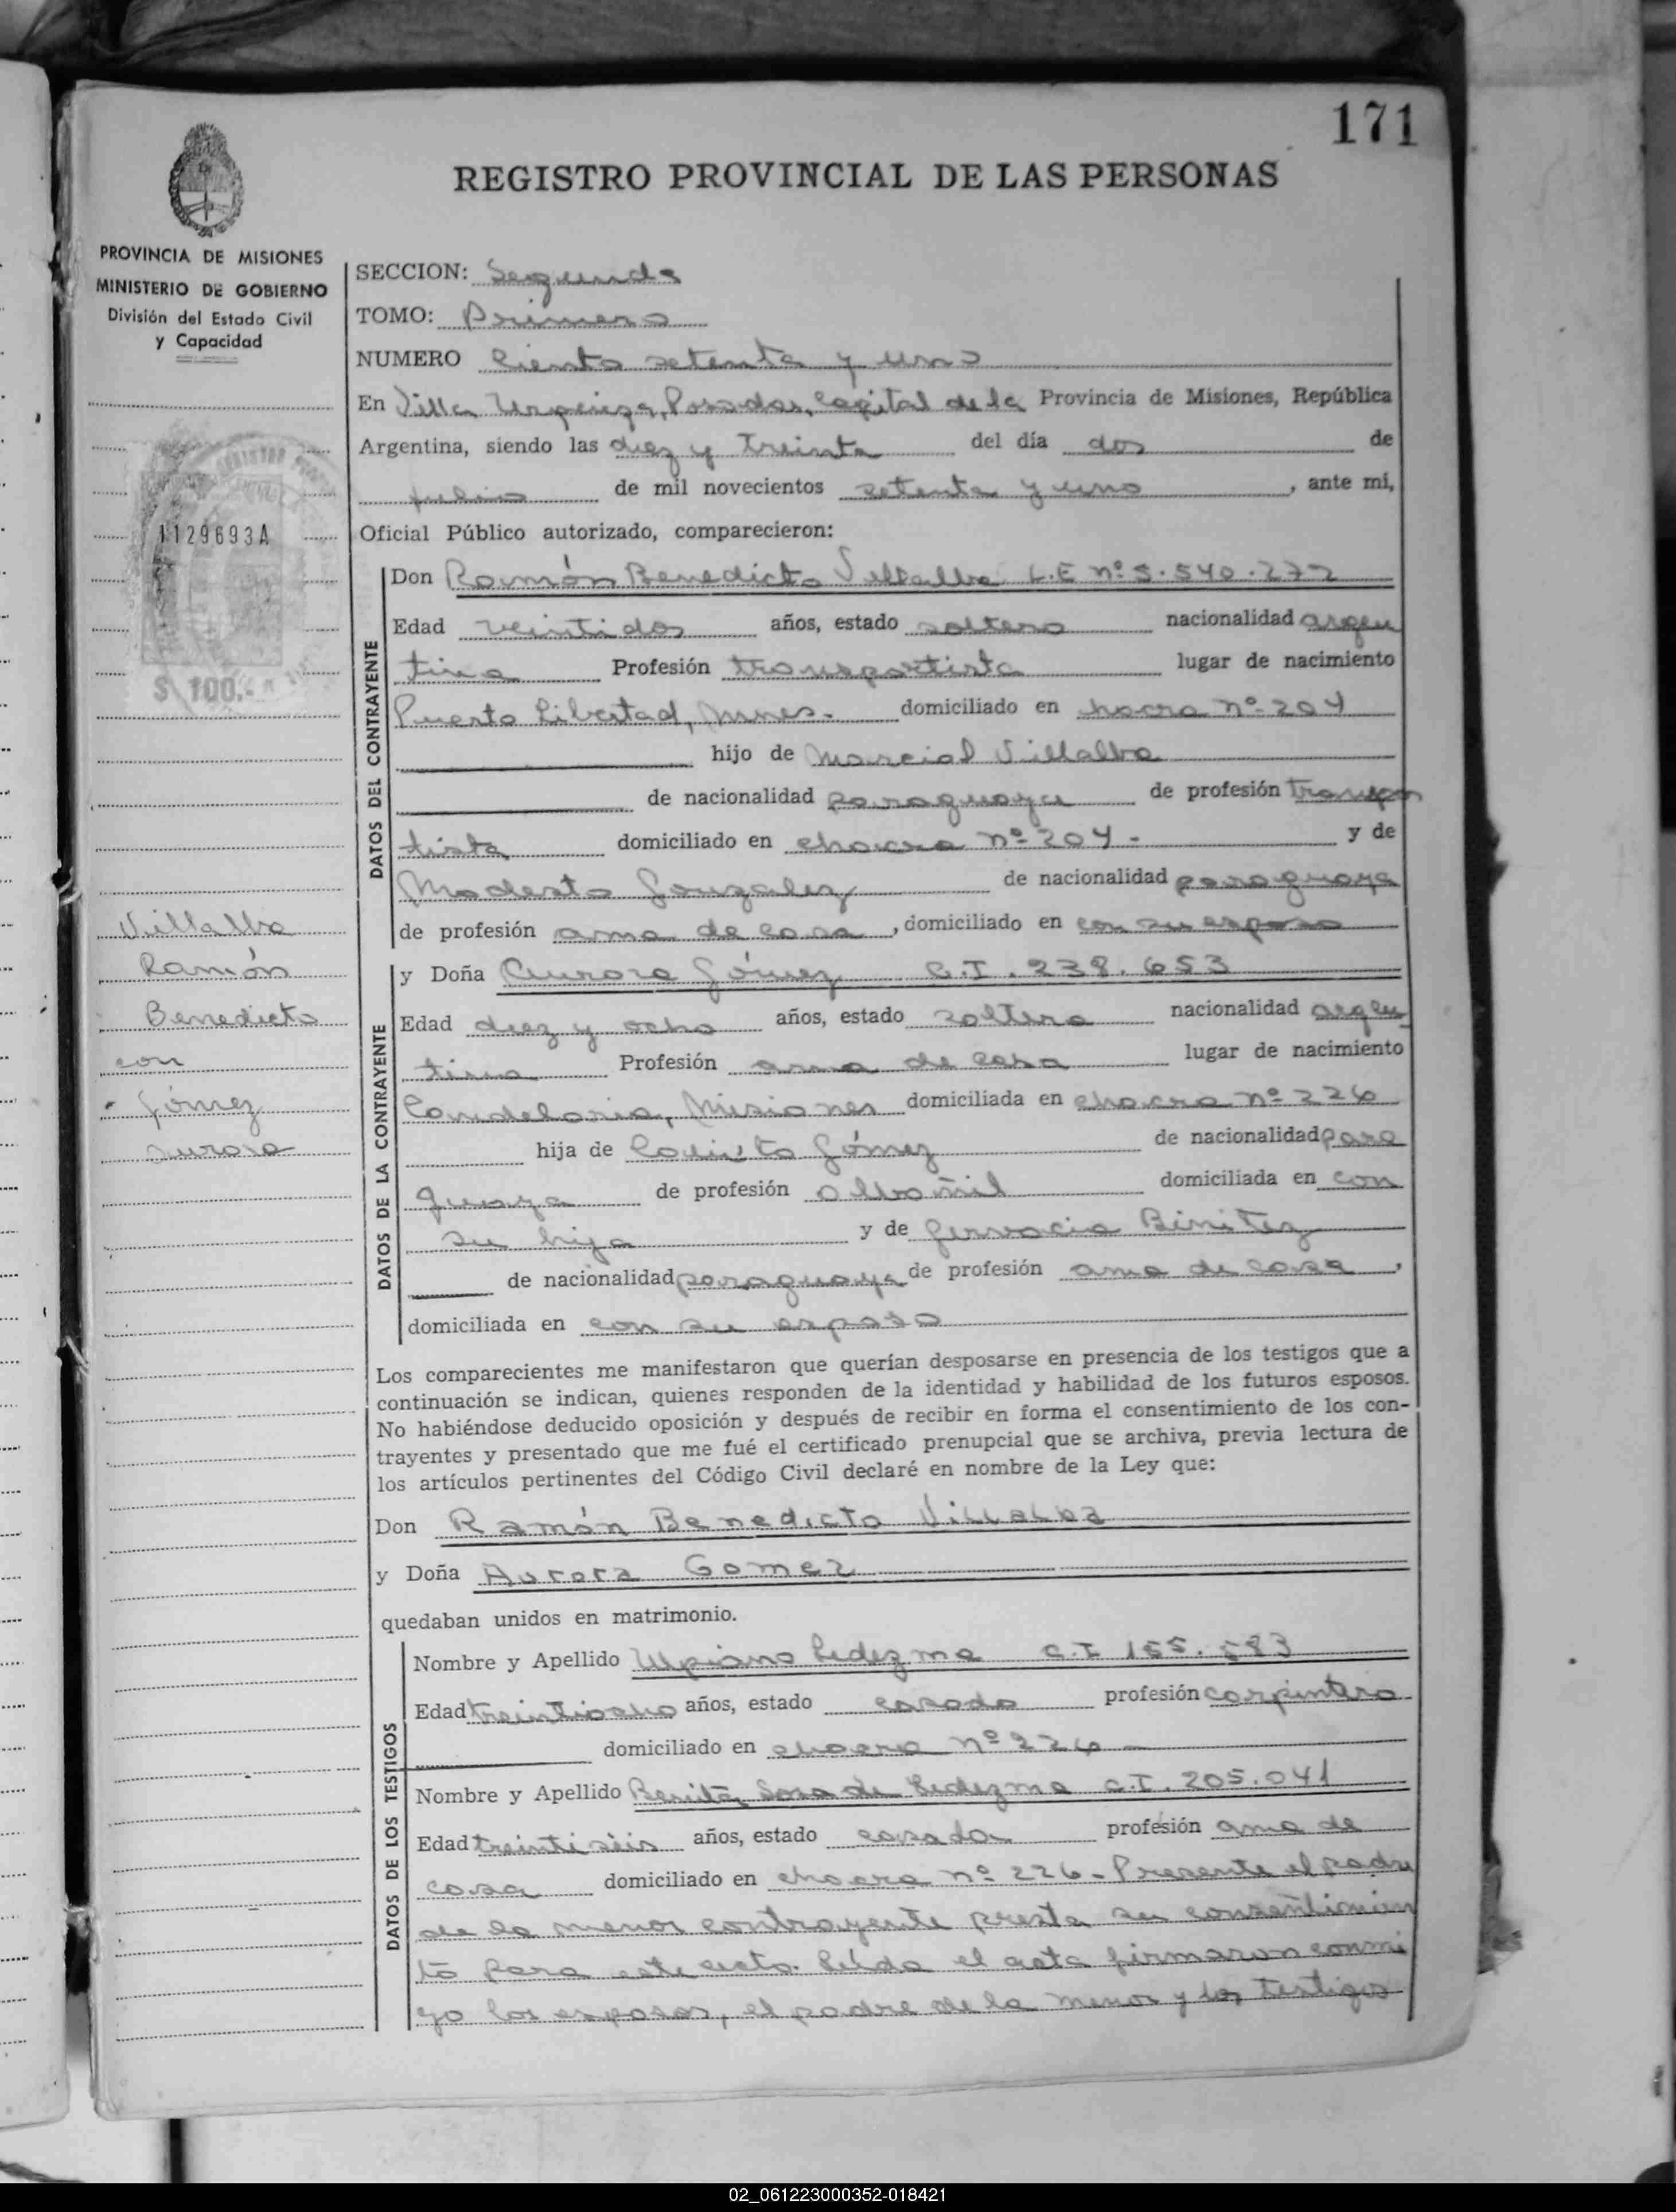 171
REGISTRO PROVINCIAL DE LAS PERSONAS
PROVINCIA DE MISIONES
MINISTERIO DE GOBIERNO
División del Estado Civil
y Capacidad
1129693A
$ 100.-
Villalba
Ramón
Benedicto
con
Gómez
Aurora
SECCION: Segunda
TOMO: Primero
NUMERO Ciento setenta y uno
En Villa Urquiza, Posadas, Capital de la Provincia de Misiones, República
Argentina, siendo las diez y treinta del día dos de
julio de mil novecientos setenta y uno, ante mí,
Oficial Público autorizado, comparecieron:
DATOS DEL CONTRAYENTE
Don Ramón Benedicto Villalba L.E nº 5.540.272
Edad veintidos años, estado soltero nacionalidad argen
tina Profesión transportista lugar de nacimiento
Puerto Libertad, Mnes. domiciliado en chacra nº 204
hijo de Marcial Villalba
de nacionalidad paraguaya de profesión transpor
tista domiciliado en chacra nº 204 - y de
Modesta Gonzalez de nacionalidad paraguaya
de profesión ama de casa, domiciliado en con su esposo
DATOS DE LA CONTRAYENTE
y Doña Aurora Gómez C.I. 238.653
Edad diez y ocho años, estado soltera nacionalidad argen
tina Profesión ama de casa lugar de nacimiento
Candelaria, Misiones domiciliada en chacra nº 226
hija de Gómez de nacionalidad para
guaya de profesión albañil domiciliada en con
su hija y de Gervacia Binitez
de nacionalidad paraguaya de profesión ama de casa,
domiciliada en con su esposo
Los comparecientes me manifestaron que querían desposarse en presencia de los testigos que a
continuación se indican, quienes responden de la identidad y habilidad de los futuros esposos.
No habiéndose deducido oposición y después de recibir en forma el consentimiento de los con-
trayentes y presentado que me fué el certificado prenupcial que se archiva, previa lectura de
los artículos pertinentes del Código Civil declaré en nombre de la Ley que:
Don Ramón Benedicto Villalba
y Doña Aurora Gomez
quedaban unidos en matrimonio.
DATOS DE LOS TESTIGOS
Nombre y Apellido Ulpiano Ledezma C.I 155.583
Edad treintiocho años, estado casado profesión carpintero
domiciliado en chacra nº 226 -
Nombre y Apellido Benita Sosa de Ledezma C.I. 205.041
Edad treinti séis años, estado casada profesión ama de
casa domiciliado en chacra nº 226 - Presente el padre
de la menor contrayente presta su consentimien
to para este acto. Leída el acta firmaron conmi
go los esposos, el padre de la menor y los testigos
02_061223000352-018421